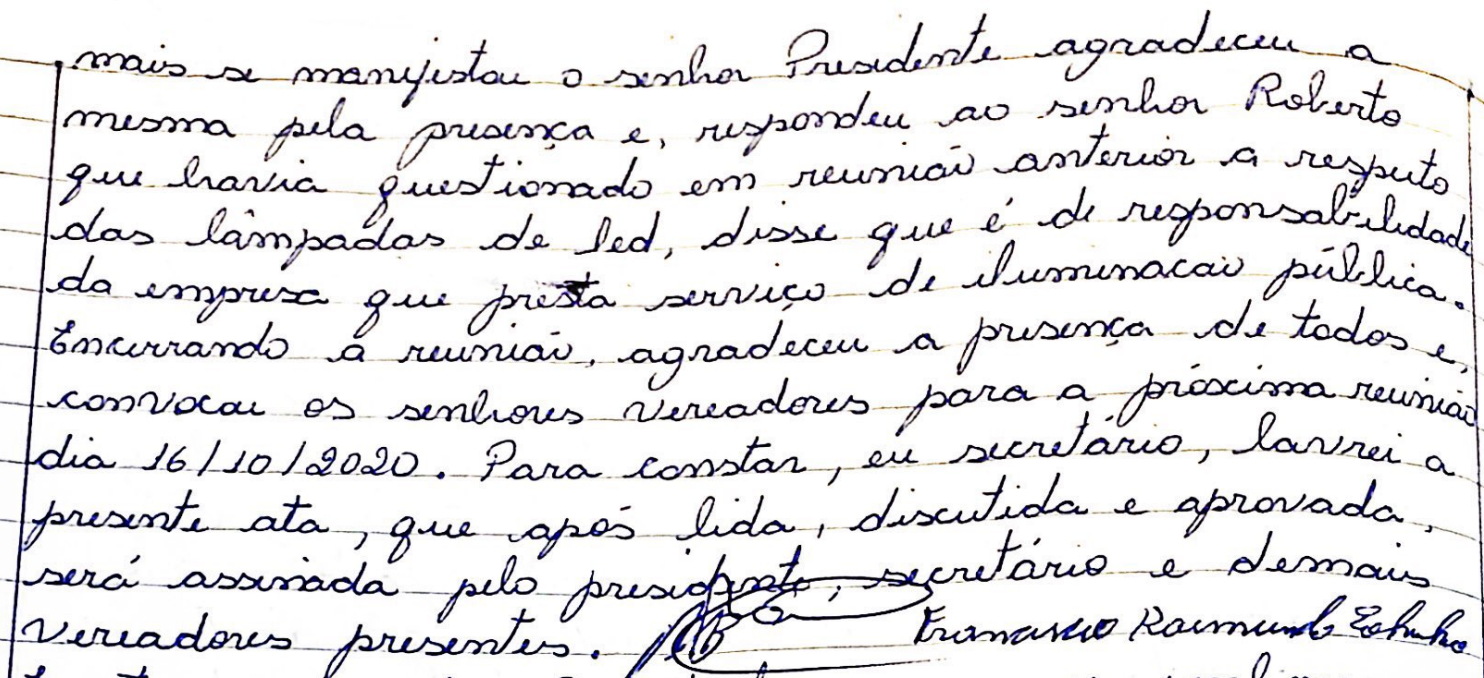 mais se manifestou o senhor Presidente agradeceu a
mesma pela presença e, respondeu ao senhor Roberto
que havia questionado em reunião anterior a respeito
das lâmpadas de led, disse que é de responsabilidade
da empresa que presta serviço de iluminacão pública.
Encerrando a reunião, agradeceu a presença de todos e,
convocou os senhores vereadores para a próxima reunião
dia 16/10/2020. Para constar, eu secretário, lavrei a
presente ata, que após lida, discutida e aprovada,
será assinada pelo presidente, secretário e demais
vereadores presentes. Francisco Raimundo